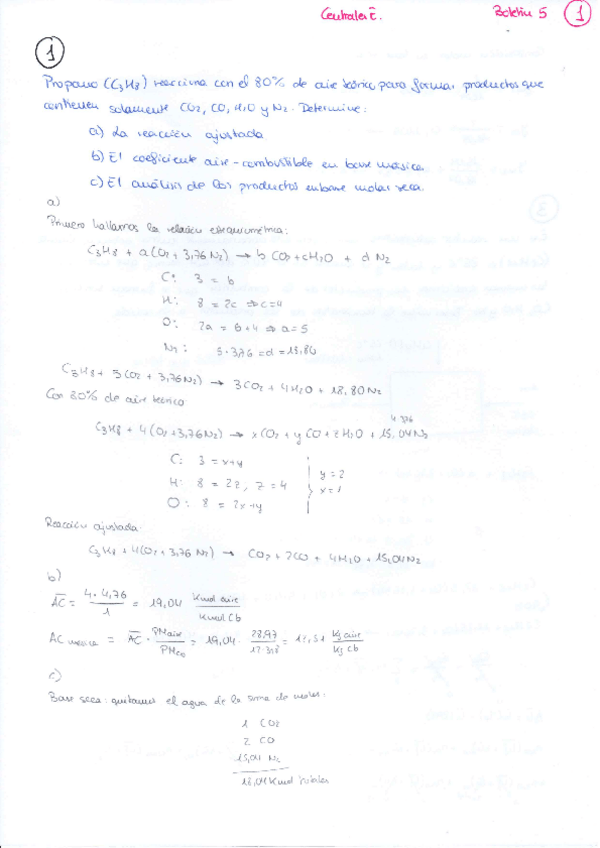 Centrales E. Boletín 5 1
1
Propano (C3H8) reacciona con el 80% de aire teórico para formar productos que
contienen solamente CO2, CO, H2O y N2. Determine:
a) La reacción ajustada
b) El coeficiente aire-combustible en base másica.
c) El análisis de los productos en base molar seca.
a)
Primero hallamos la relación estequiométrica:
C3H8 + a(O2 + 3,76 N2) → b CO2 + cH2O + d N2
C: 3 = b
H: 8 = 2c ⇒ c=4
O: 2a = 6+4 ⇒ a=5
N2: 5·3,76 = d = 18,80
C3H8 + 5(O2 + 3,76 N2) → 3CO2 + 4H2O + 18,80 N2
Con 80% de aire teórico
4·3,76
C3H8 + 4(O2 + 3,76 N2) → xCO2 + yCO + zH2O + 15,04 N2
C: 3 = x+y
y = 2
H: 8 = 2z, z = 4
x = 1
O: 8 = 2x+y
Reacción ajustada:
C3H8 + 4(O2 + 3,76 N2) → CO2 + 2CO + 4H2O + 15,04 N2
b)
AC = 4·4,76 / 1 = 19,04 Kmol aire / Kmol Cb
AC másica = AC · PMaire / PMco = 19,04 · 28,97 / = Kg aire / Kg Cb
c)
Base seca: quitamos el agua de la suma de moles:
1 CO2
2 CO
15,04 N2
18,04 Kmol totales